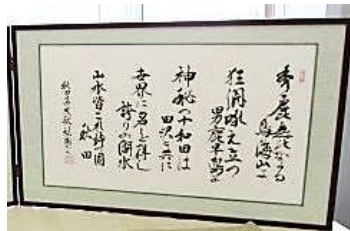 秀麗無比なる
鳥海山よ
狂瀾吼え立つ
男鹿半島よ
神秘の十和田は
田沢と共に
世界に名を得し
誇りの湖水
山水皆これ詩の国
秋田
秋田県民歌